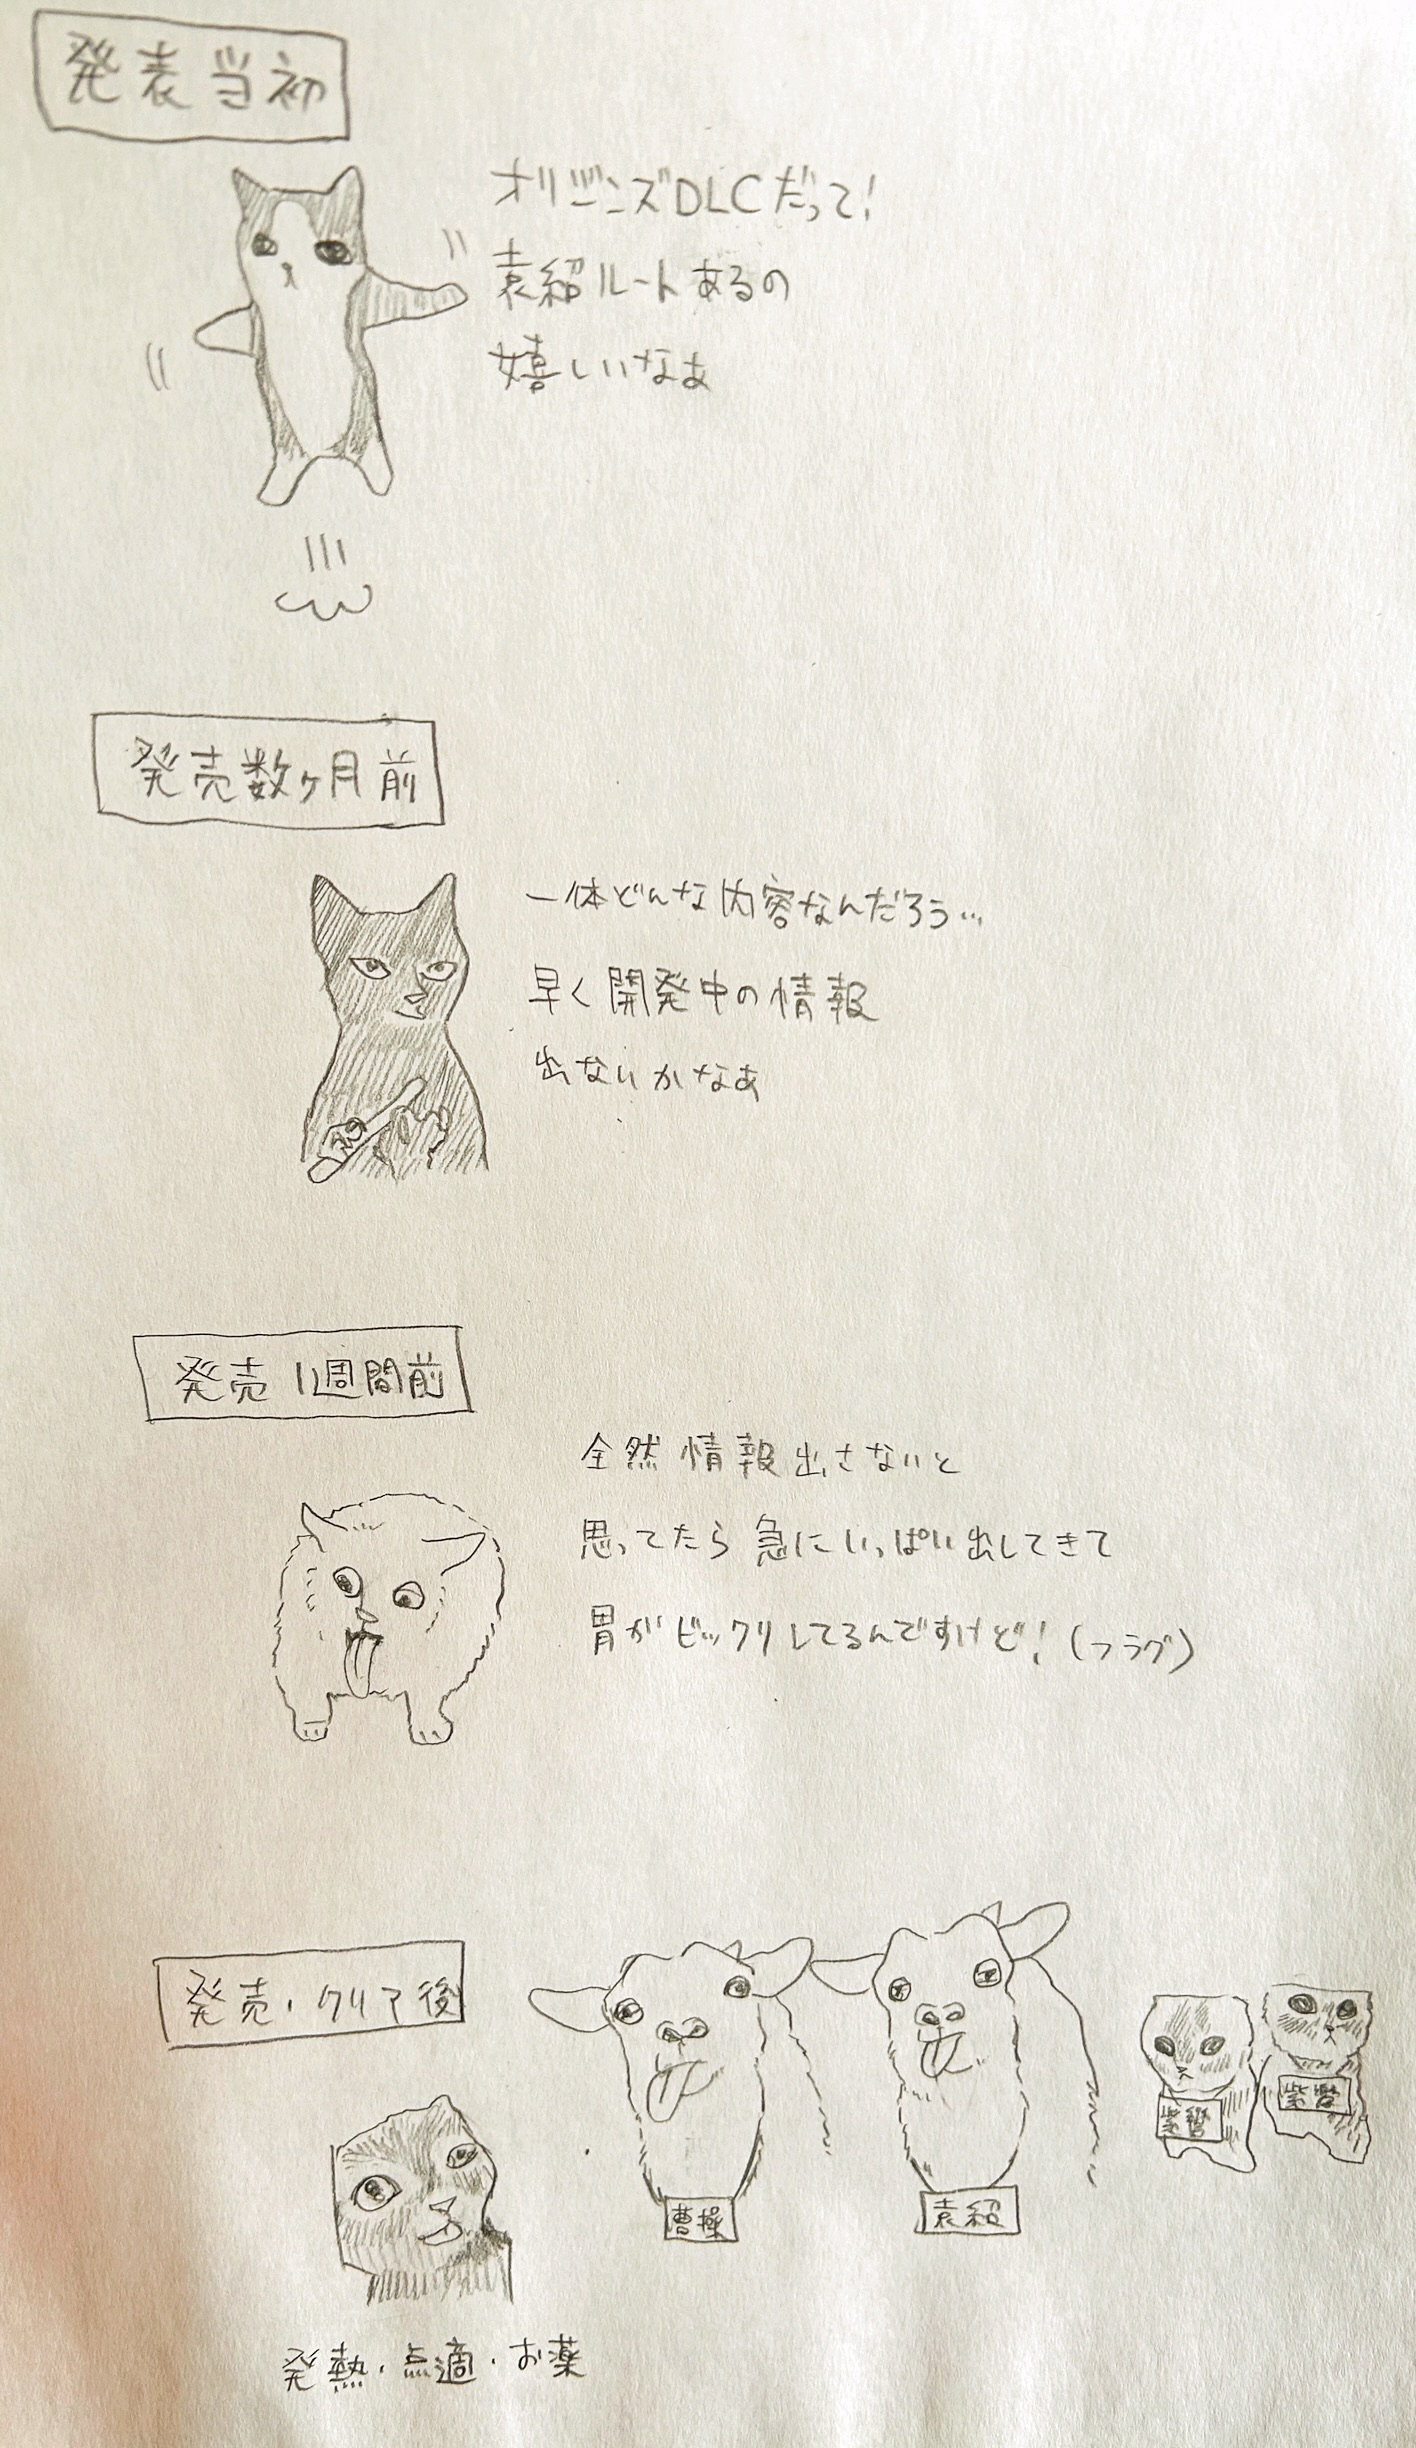 発表当初
オリジンズDLCだって!
袁紹ルートあるの
嬉しいなあ
発売数ヶ月前
一体どんな内容なんだろう…
早く開発中の情報
出ないかなあ
発売1週間前
全然情報出さないと
思ってたら急にいっぱい出してきて
胃がビックリしてるんですけど!(フラグ)
発売・クリア後
曹操
袁紹
紫鸞
紫鸞
発熱・点滴・お薬